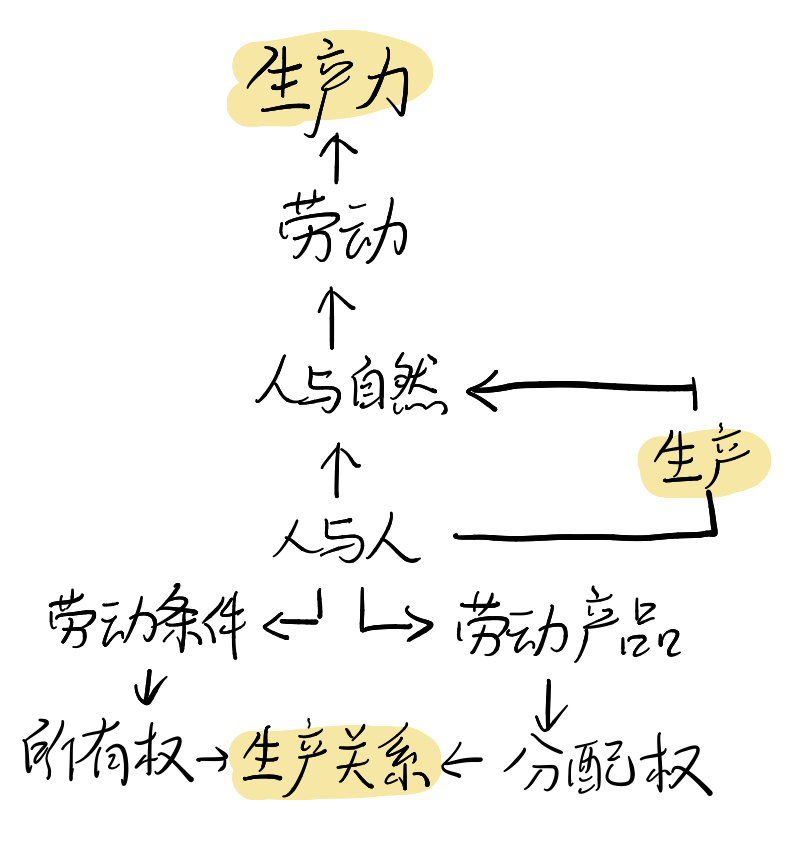 生产力
劳动
人与自然
生产
人与人
劳动条件
劳动产品
所有权
生产关系
分配权